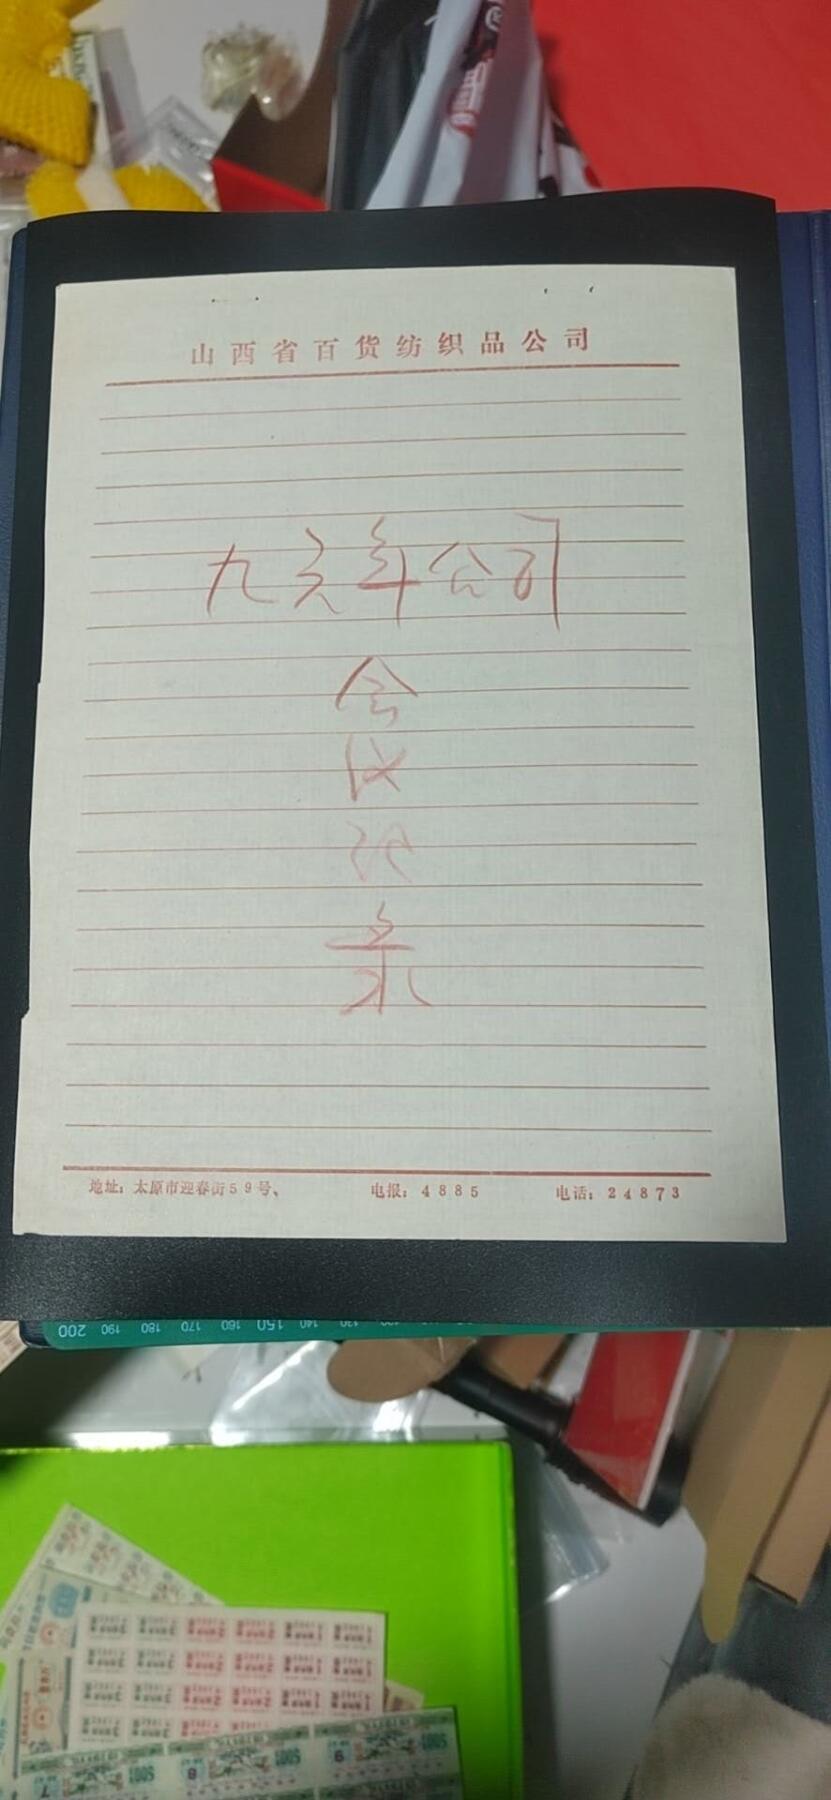 山西省百货纺织品公司
九六年公司
会
议
记
录
地址：太原市迎春街59号、 电报：4885 电话：24873
200 190 180 170 160 150 140 130